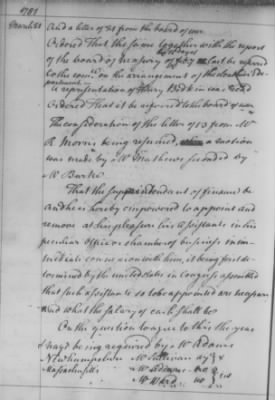 1781
March 21
And a letter of 21 from the board of war
Ordered That the same together with the report
of the board of treasury of feby last be referred
to the com^ee on the arrangement of the
department
A representation of Henry was read
Ordered That it be referred to the board of war
The consideration of the letter of 13 from M^r
R Morris being resumed, a motion
was made by M^r Mathews seconded by
M^r Burke
That the superintendant of finance be
and he is hereby empowered to appoint and
remove at his pleasure his assistants in his
peculiar office or chamber of business in im-
mediate connexion with him, it being first de-
termined by the united states in Congress assembled
that such assistants so to be appointed are necessary
and what the salary of each shall be
On the question to agree to this the yeas
& nays being required by M^r Adams
Newhampshire M^r Sullivan ay
Massachusetts M^r Adams no
M^r Ward no